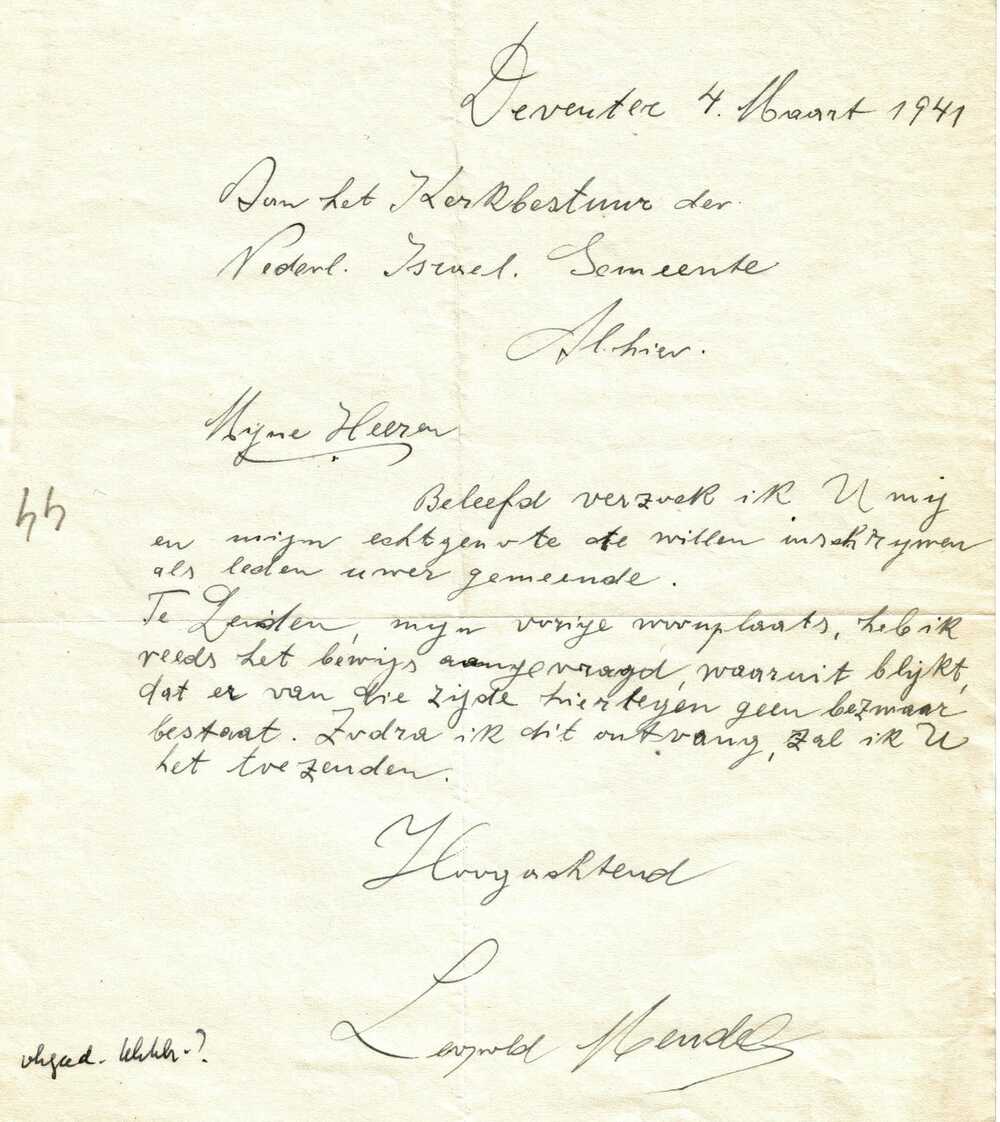 Deventer 4. Maart 1941
Aan het Kerkbestuur der
Nederl. Israel. Gemeente
Alhier.
Mijne Heeren
Beleefd verzoek ik U mij
en mijn echtgenote te willen inschrijven
als leden uwer gemeende.
Te Leiden, mijn vorige woonplaats, heb ik
reeds het bewijs aangevraagd, waaruit blijkt,
dat er van die zijde hiertegen geen bezwaar
bestaat. Zodra ik dit ontvang, zal ik U
het toezenden.
Hoogachtend
Leopold Mendel